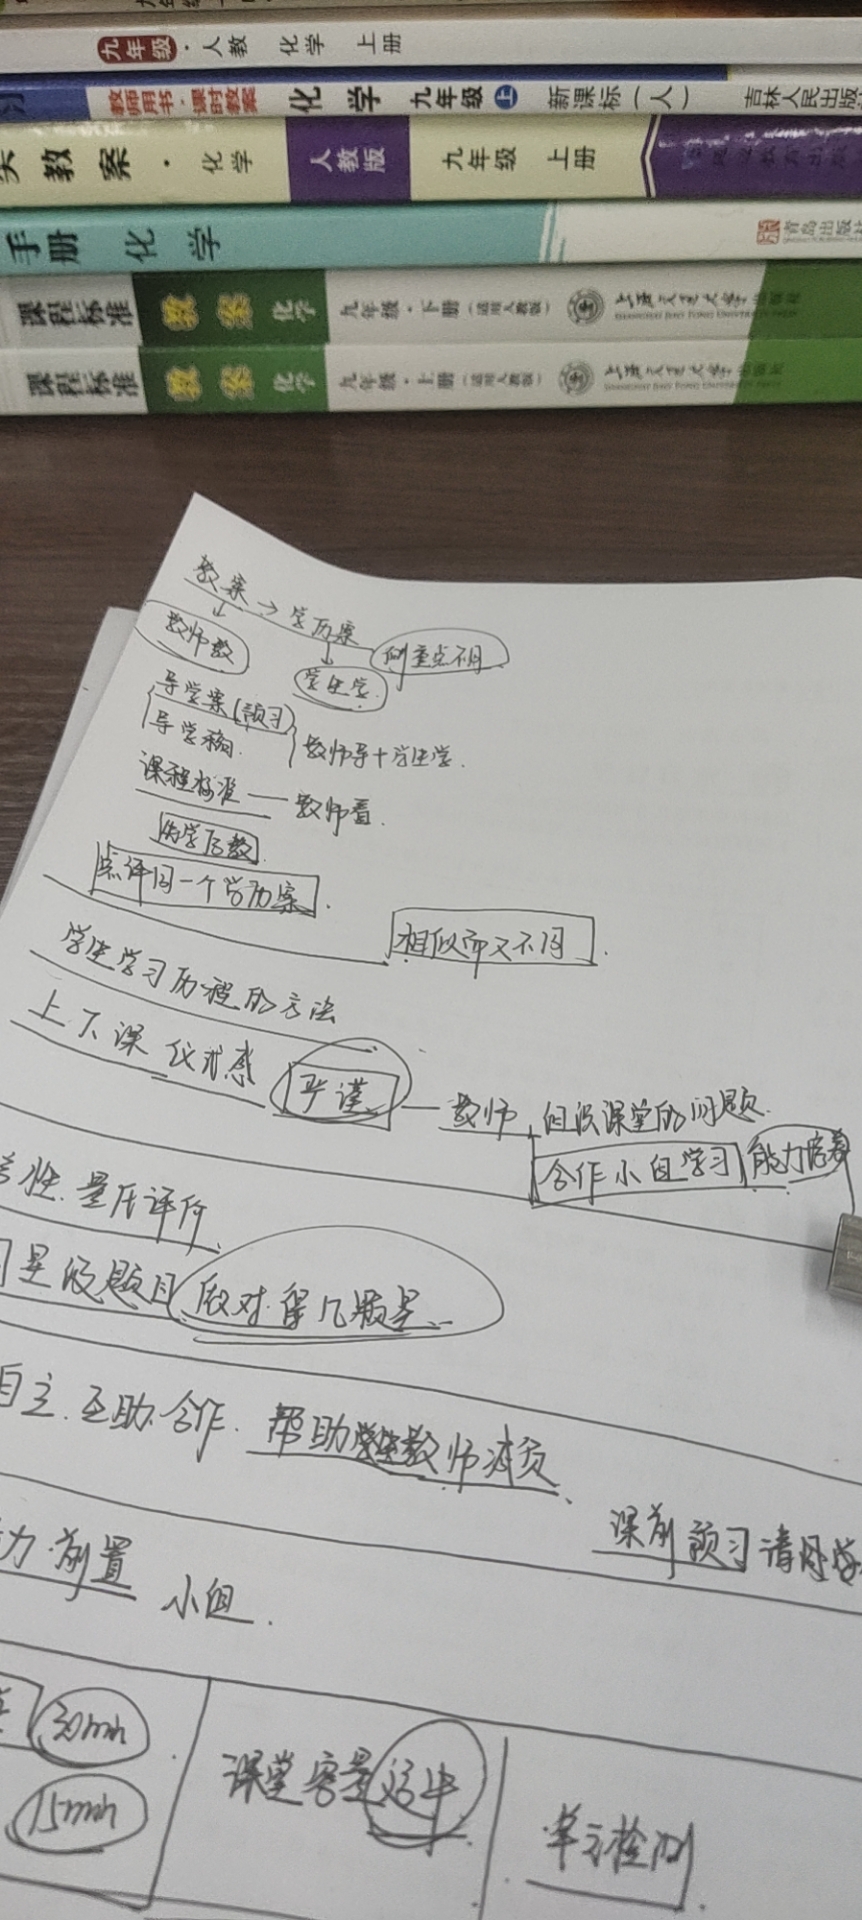 九年级·人教 化学 上册
教师用书·课时教案 化学 九年级 上 新课标(人) 吉林人民出版
教案·化学 人教版 九年级 上册
手册 化学 青岛出版社
课程标准 教案 化学 九年级·下册(适用人教版) 上海交通大学出版社
课程标准 教案 化学 九年级·上册(适用人教版) 上海交通大学出版社
教案→学历案 侧重点不同
教师教 学生学
导学案(预习)
导学稿 教师导+学生学.
课程标准——教师看.
先学后教
点评同一个学历案. 相似而又不同.
学生学习历程的方法
上下课仪式感 严谨、—教师
课堂的问题.
合作小组学习 能力培养
性.量压评价、
题目 做对 留几颗星、
自主.互助.合作. 帮助学生教师减负、
课前预习请
力.前置 小组.
30min
15min
课堂容量适中.
单元检测.